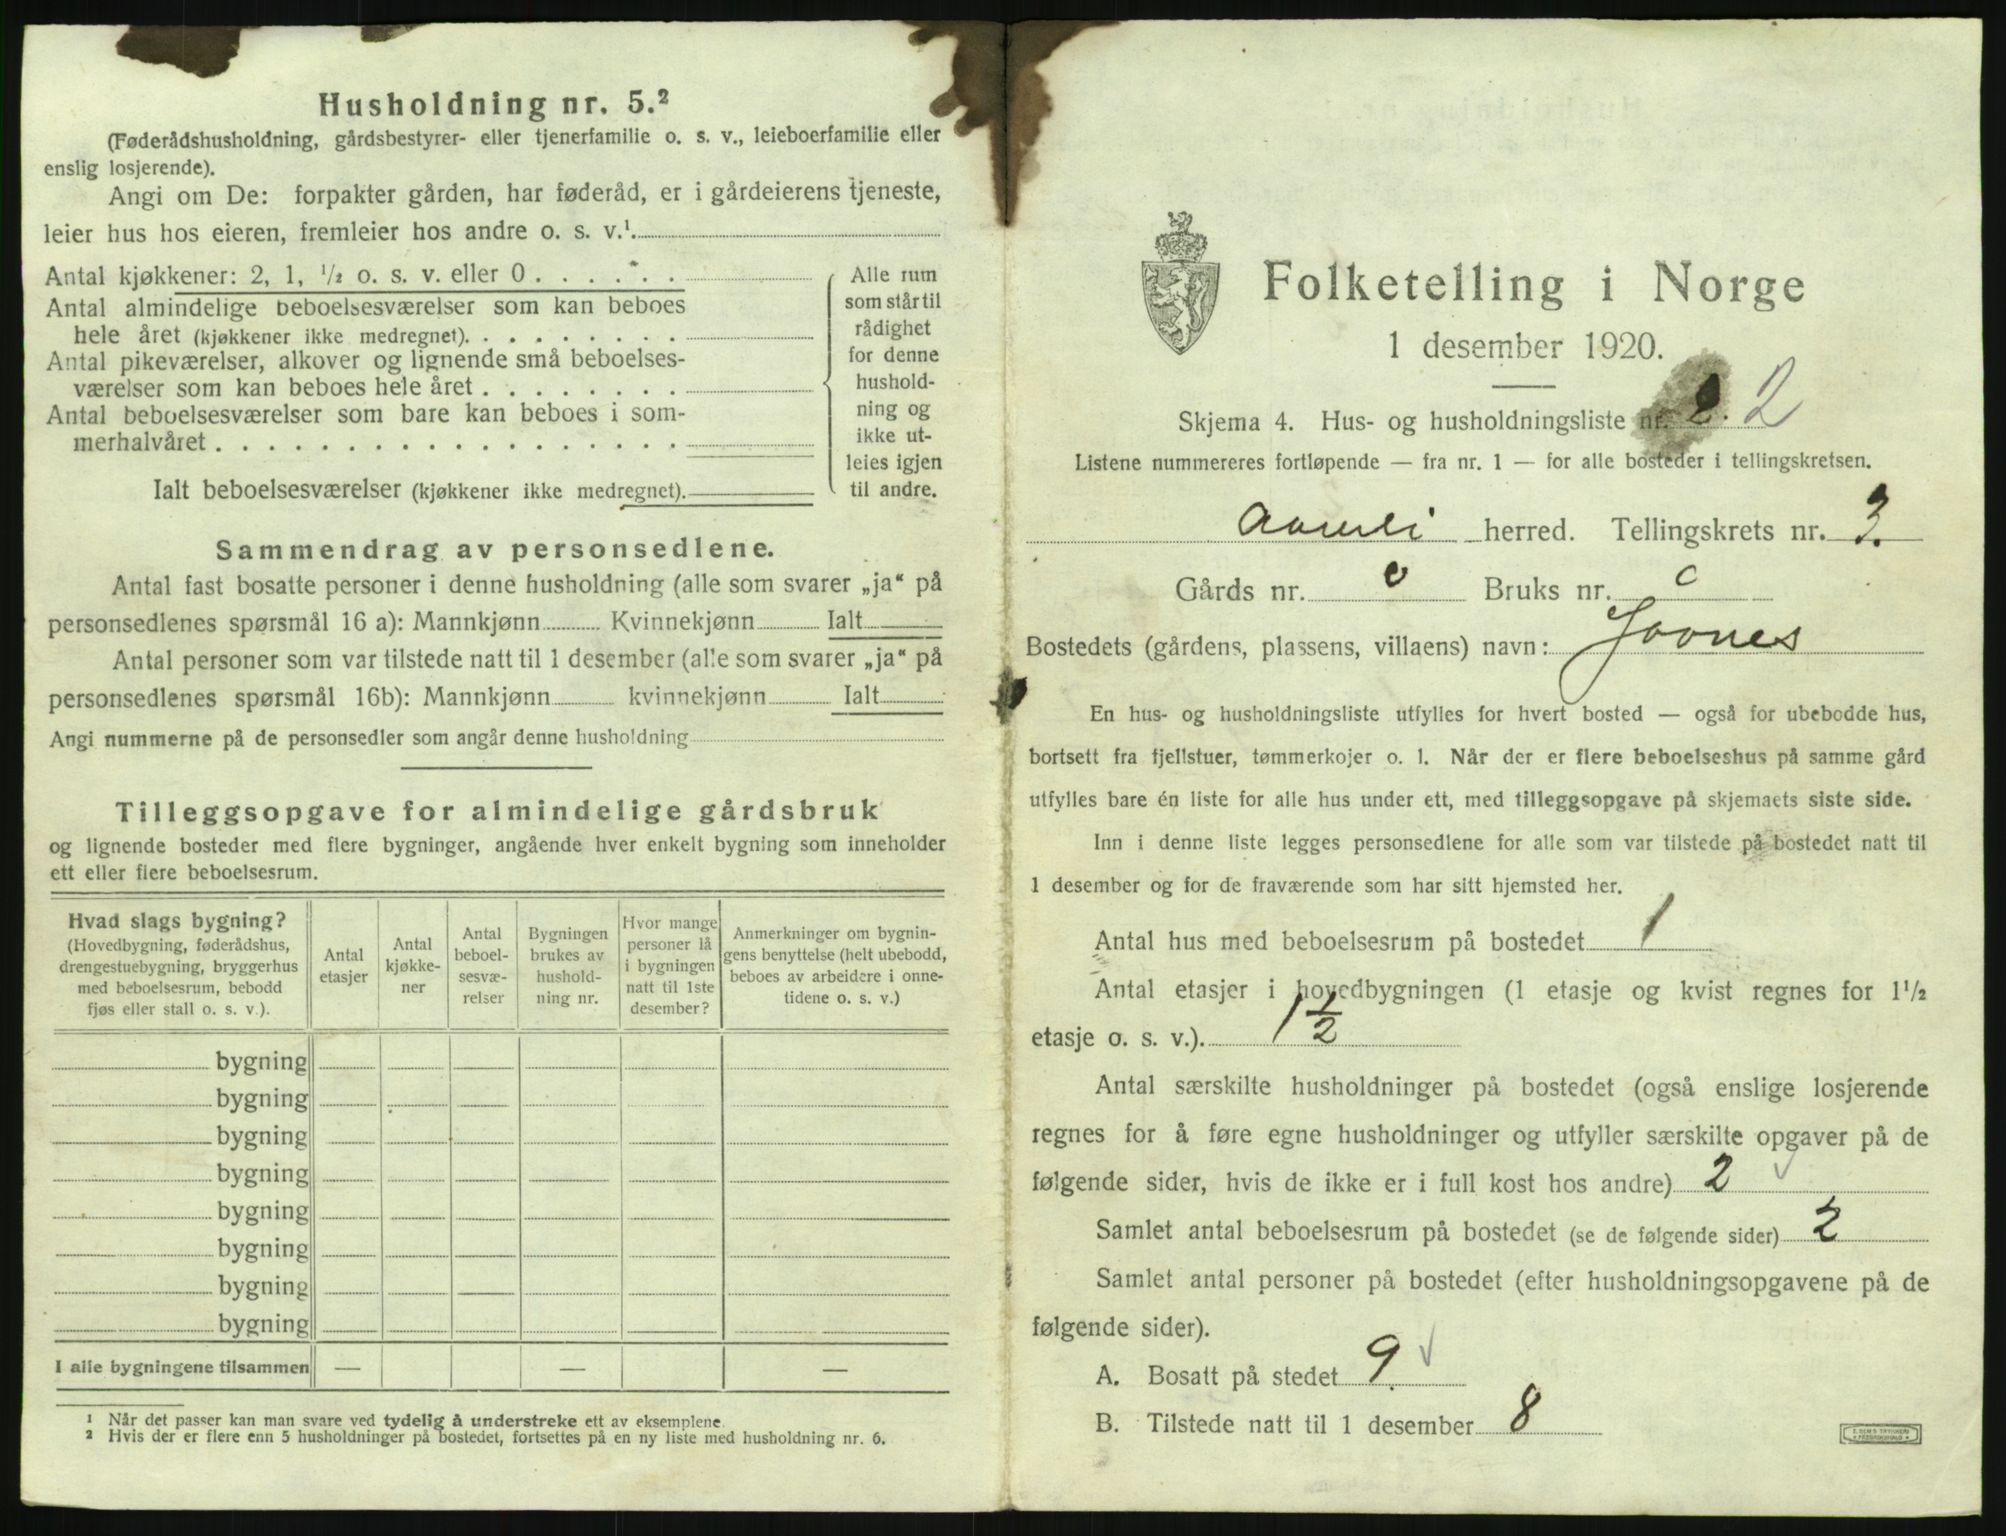 Husholdning nr. 5.²
(Føderådshusholdning, gårdsbestyrer- eller tjenerfamilie o. s. v., leieboerfamilie eller
enslig losjerende).
Angi om De: forpakter gården, har føderåd, er i gårdeierens tjeneste,
leier hus hos eieren, fremleier hos andre o. s. v.¹.
Antal kjøkkener: 2, 1, ½ o. s. v. eller 0 . . . . . .
Antal almindelige beboelsesværelser som kan beboes
hele året (kjøkkener ikke medregnet). . . . . . . . .
Antal pikeværelser, alkover og lignende små beboelses-
værelser som kan beboes hele året . . . . . . . .
Antal beboelsesværelser som bare kan beboes i som-
merhalvåret . . . . . . . . . . . . . . . . . .
Ialt beboelsesværelser (kjøkkener ikke medregnet).
Alle rum
som står til
rådighet
for denne
hushold-
ning og
ikke ut-
leies igjen
til andre.
Sammendrag av personsedlene.
Antal fast bosatte personer i denne husholdning (alle som svarer „ja“ på
personsedlenes spørsmål 16 a): Mannkjønn Kvinnekjønn Ialt
Antal personer som var tilstede natt til 1 desember (alle som svarer „ja“ på
personsedlenes spørsmål 16b): Mannkjønn kvinnekjønn Ialt
Angi nummerne på de personsedler som angår denne husholdning
Tilleggsopgave for almindelige gårdsbruk
og lignende bosteder med flere bygninger, angående hver enkelt bygning som inneholder
ett eller flere beboelsesrum.
Hvad slags bygning?
(Hovedbygning, føderådshus,
drengestuebygning, bryggerhus
med beboelsesrum, bebodd
fjøs eller stall o. s. v.).
Antal
etasjer
Antal
kjøkke-
ner
Antal
beboel-
sesvæ-
relser
Bygningen
brukes av
hushold-
ning nr.
Hvor mange
personer lå
i bygningen
natt til 1ste
desember?
Anmerkninger om bygnin-
gens benyttelse (helt ubebodd,
beboes av arbeidere i onne-
tidene o. s. v.)
bygning
bygning
bygning
bygning
bygning
bygning
bygning
bygning
I alle bygningene tilsammen — — —
¹ Når det passer kan man svare ved tydelig å understreke ett av eksemplene.
² Hvis der er flere enn 5 husholdninger på bostedet, fortsettes på en ny liste med husholdning nr. 6.
Folketelling i Norge
1 desember 1920.
Skjema 4. Hus- og husholdningsliste nr. 2. 2
Listene nummereres fortløpende — fra nr. 1 — for alle bosteder i tellingskretsen.
Aamli herred. Tellingskrets nr. 3.
Gårds nr. 0 Bruks nr. 0
Bostedets (gårdens, plassens, villaens) navn:
En hus- og husholdningsliste utfylles for hvert bosted — også for ubebodde hus,
bortsett fra fjellstuer, tømmerkojer o. l. Når der er flere beboelseshus på samme gård
utfylles bare én liste for alle hus under ett, med tilleggsopgave på skjemaets siste side.
Inn i denne liste legges personsedlene for alle som var tilstede på bostedet natt til
1 desember og for de fraværende som har sitt hjemsted her.
Antal hus med beboelsesrum på bostedet 1
Antal etasjer i hovedbygningen (1 etasje og kvist regnes for 1½
etasje o. s. v.). 1½
Antal særskilte husholdninger på bostedet (også enslige losjerende
regnes for å føre egne husholdninger og utfyller særskilte opgaver på de
følgende sider, hvis de ikke er i full kost hos andre) 2 ✓
Samlet antal beboelsesrum på bostedet (se de følgende sider) 2
Samlet antal personer på bostedet (efter husholdningsopgavene på de
følgende sider).
A. Bosatt på stedet 9. ✓
B. Tilstede natt til 1 desember 8